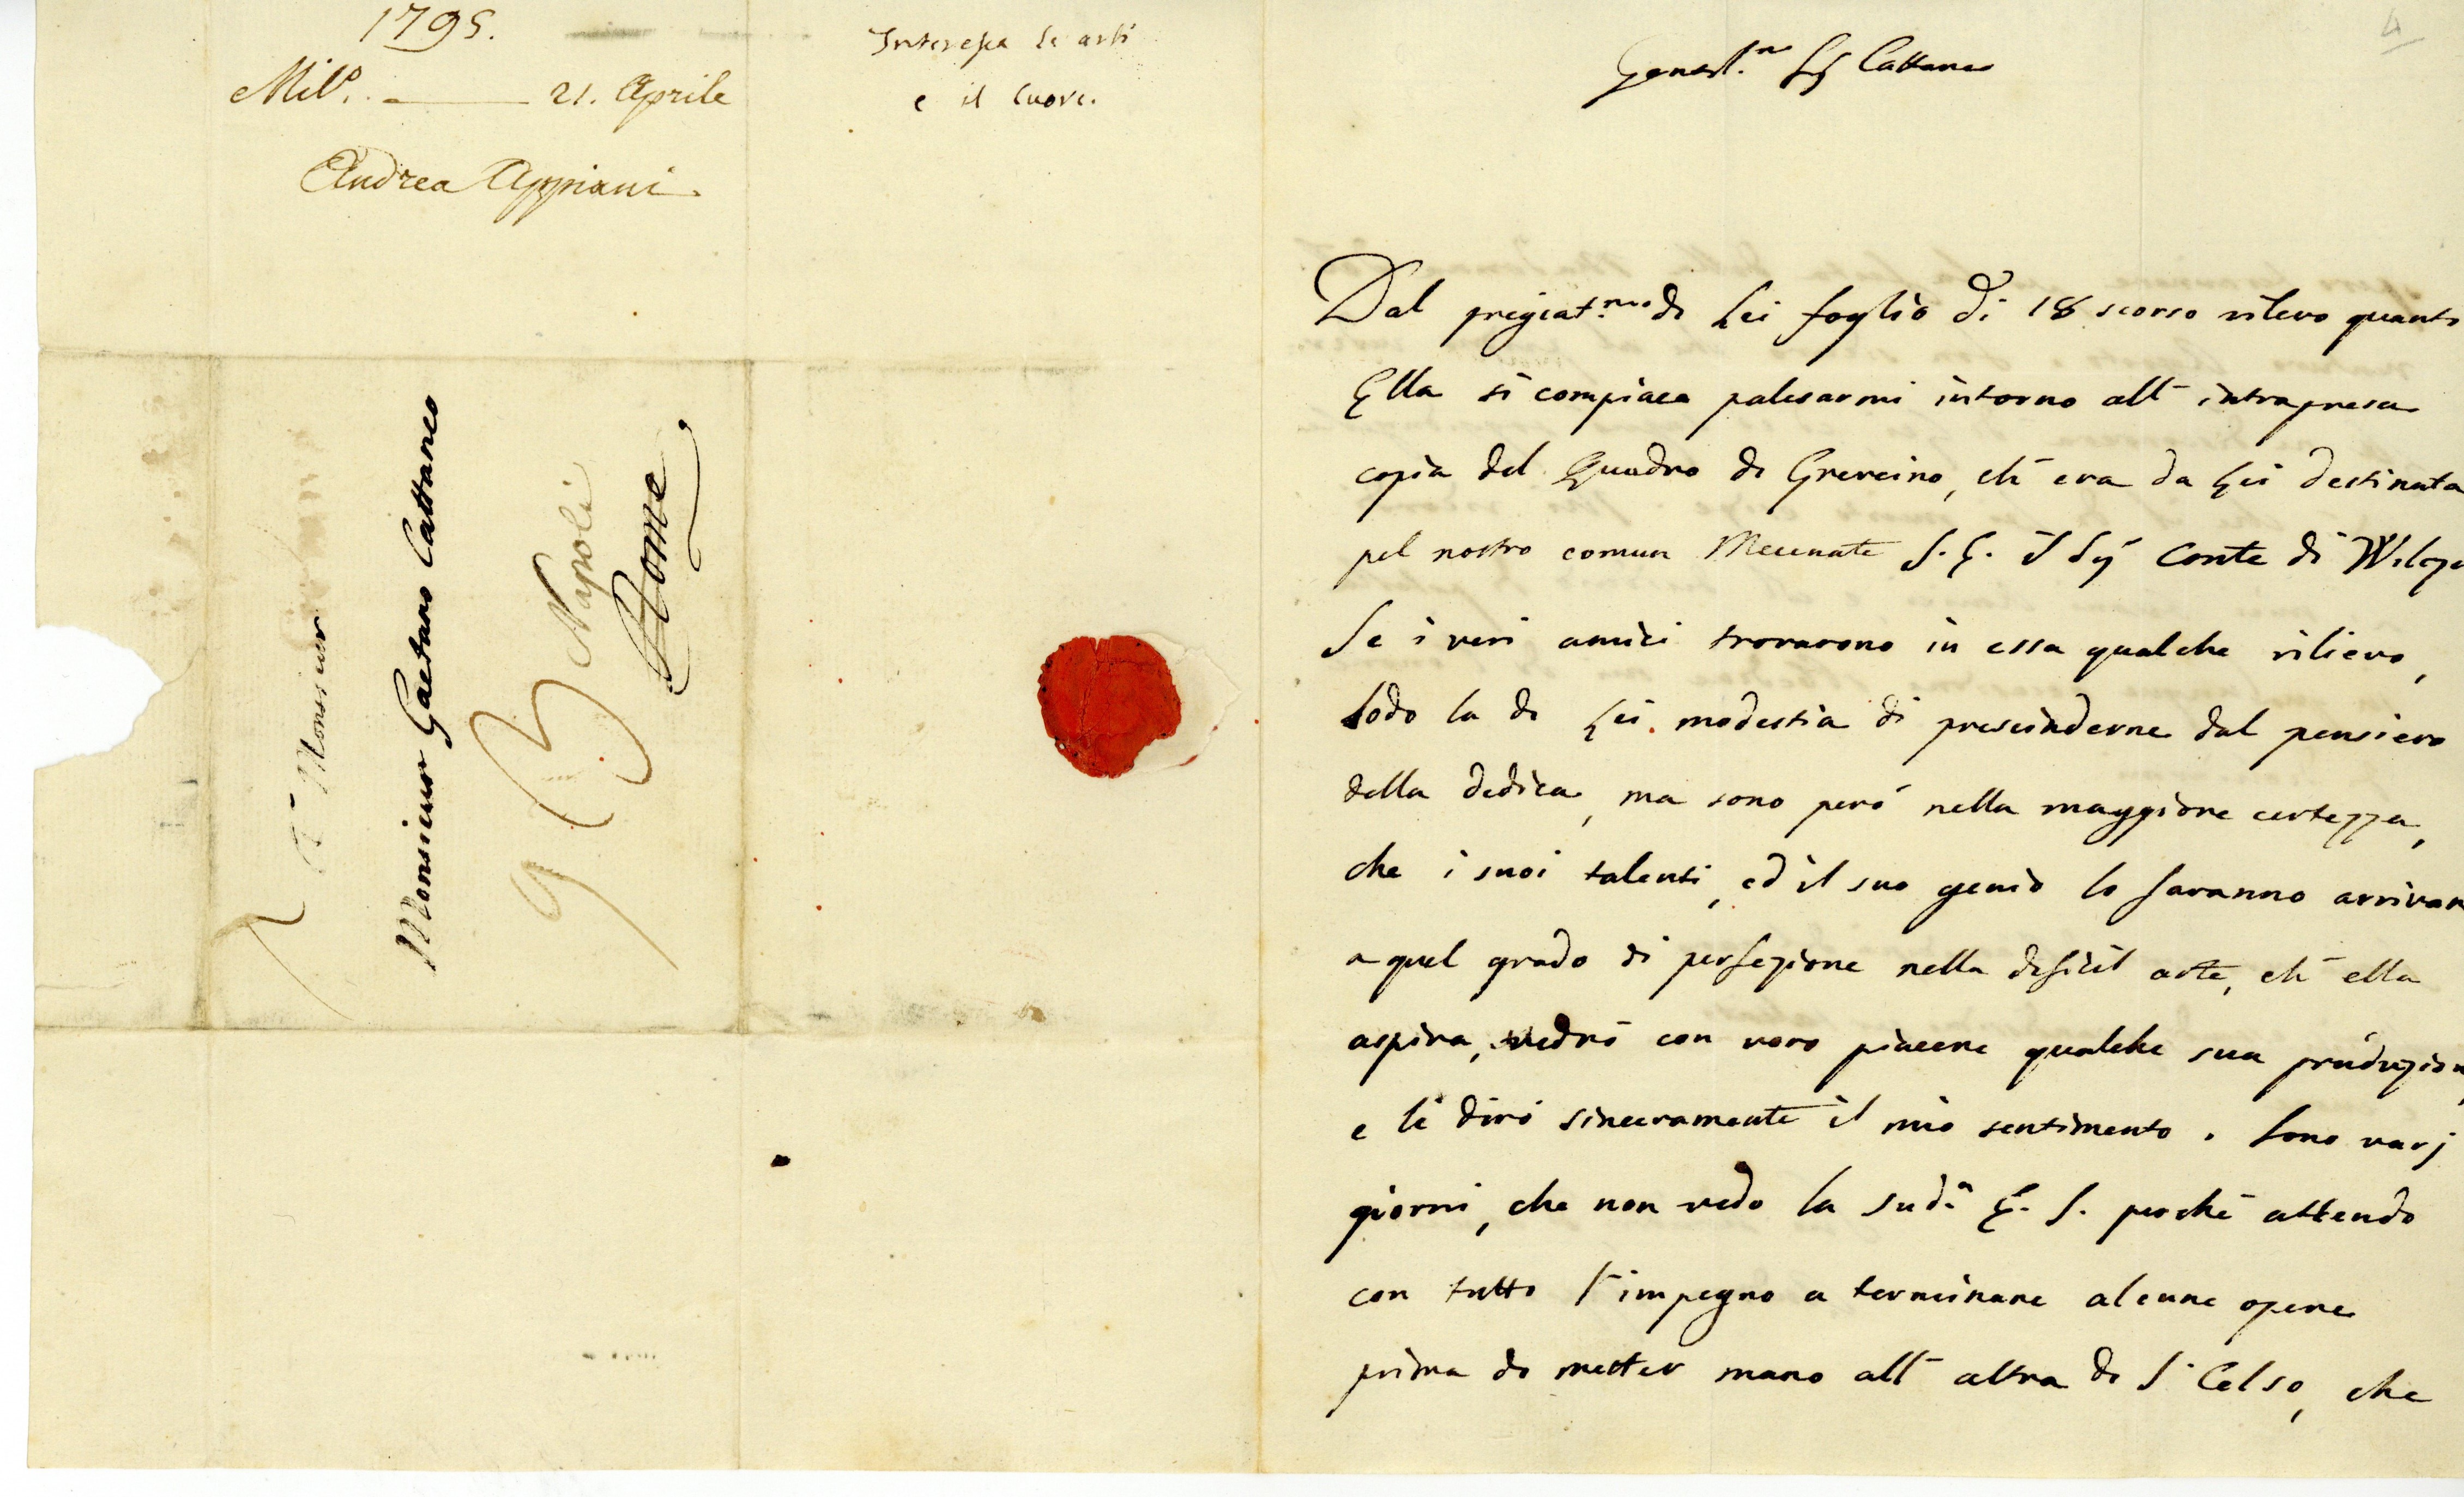 1795.
Mil.º 21. Aprile
Andrea Appiani
Interessa le arti
e il Cuore.
A Monsieur
Monsieur Gaetano Cattaneo
Napoli
Rome
4
Gentil.mo Sig Cattaneo
Dal pregiat.mo di Lei foglio di 18 scorso rilevo quanto
Ella si compiace palesarmi intorno all' intrapresa
copia del Quadro di Guercino, ch' era da Lei destinata
pel nostro comun Mecenate S. E. il Sig Conte di Wilze
Se i veri amici trovarono in essa qualche rilievo,
lodo la di Lei modestia di prescinderne dal pensiero
della dedica, ma sono però nella maggiore certezza,
che i suoi talenti, ed il suo genio lo faranno arrivar
a quel grado di perfezione nella dificil arte, ch' ella
aspira, vedrò con vero piacere qualche sua produzion
e le dirò sinceramente il mio sentimento. Sono varj
giorni, che non vedo la Sud.a E. S. perchè attendo
con tutto l'impegno a terminare alcune opere
prima di metter mano all' altra di S. Celso, che